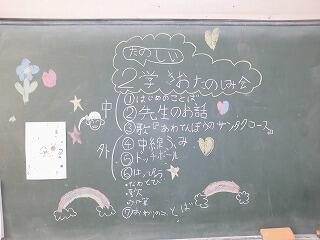 たのしい
2学 おたのしみ会
中
① はじめのことば
② 先生のお話
③ 歌『あわてんぼうのサンタクロース』
外
④ 中線ふみ
⑤ ドッチボール
⑥ はっぴょう
なわとび
歌
⑦ おわりのことば